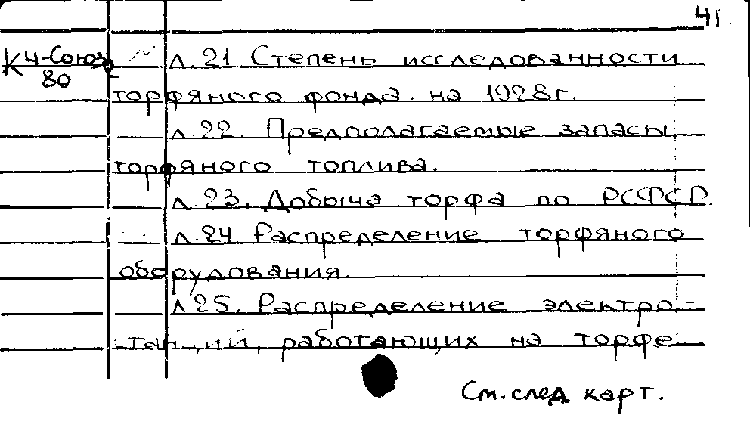 41
К4-Союз л.21 Степень исследованности
80
торфяного фонда. на 1928г.
л.22. Предполагаемые запасы
торфяного топлива.
л.23. Добыча торфа по РСФСР.
л.24 Распределение торфяного
оборудования.
л 25. Распределение электро-
танций, работающих на торфе
См. след карт.